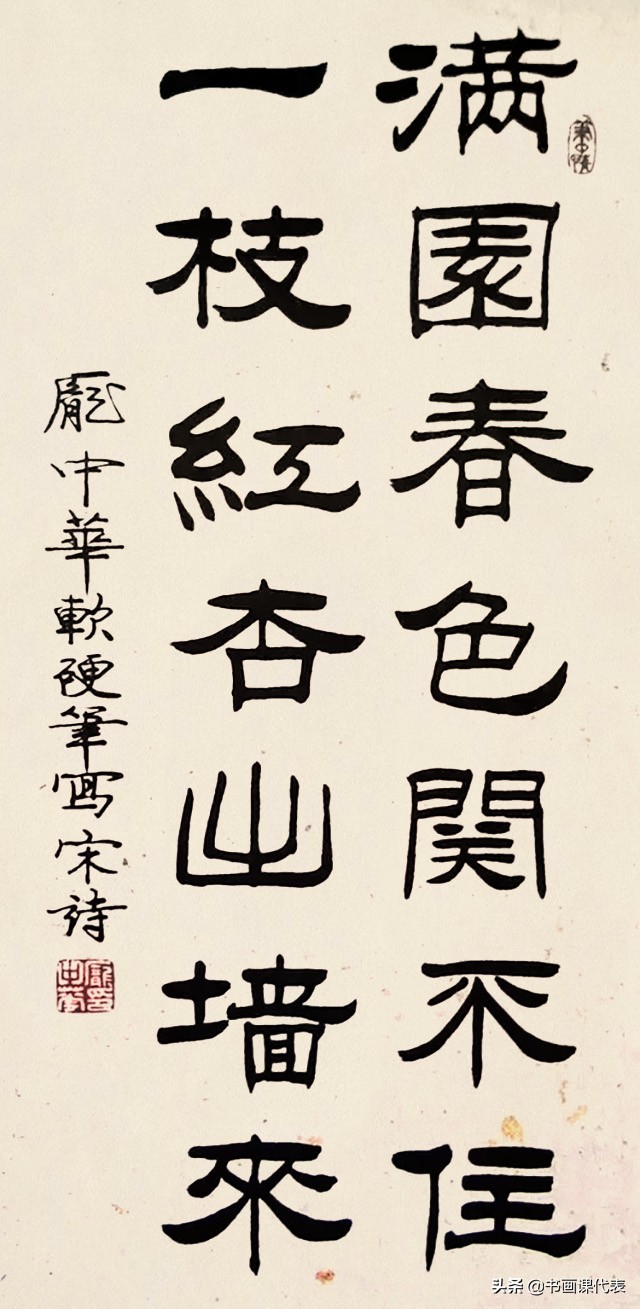 满園春色関不住
一枝紅杏出墙來
龐中華軟硬筆寫宋詩
头条 @书画课代表